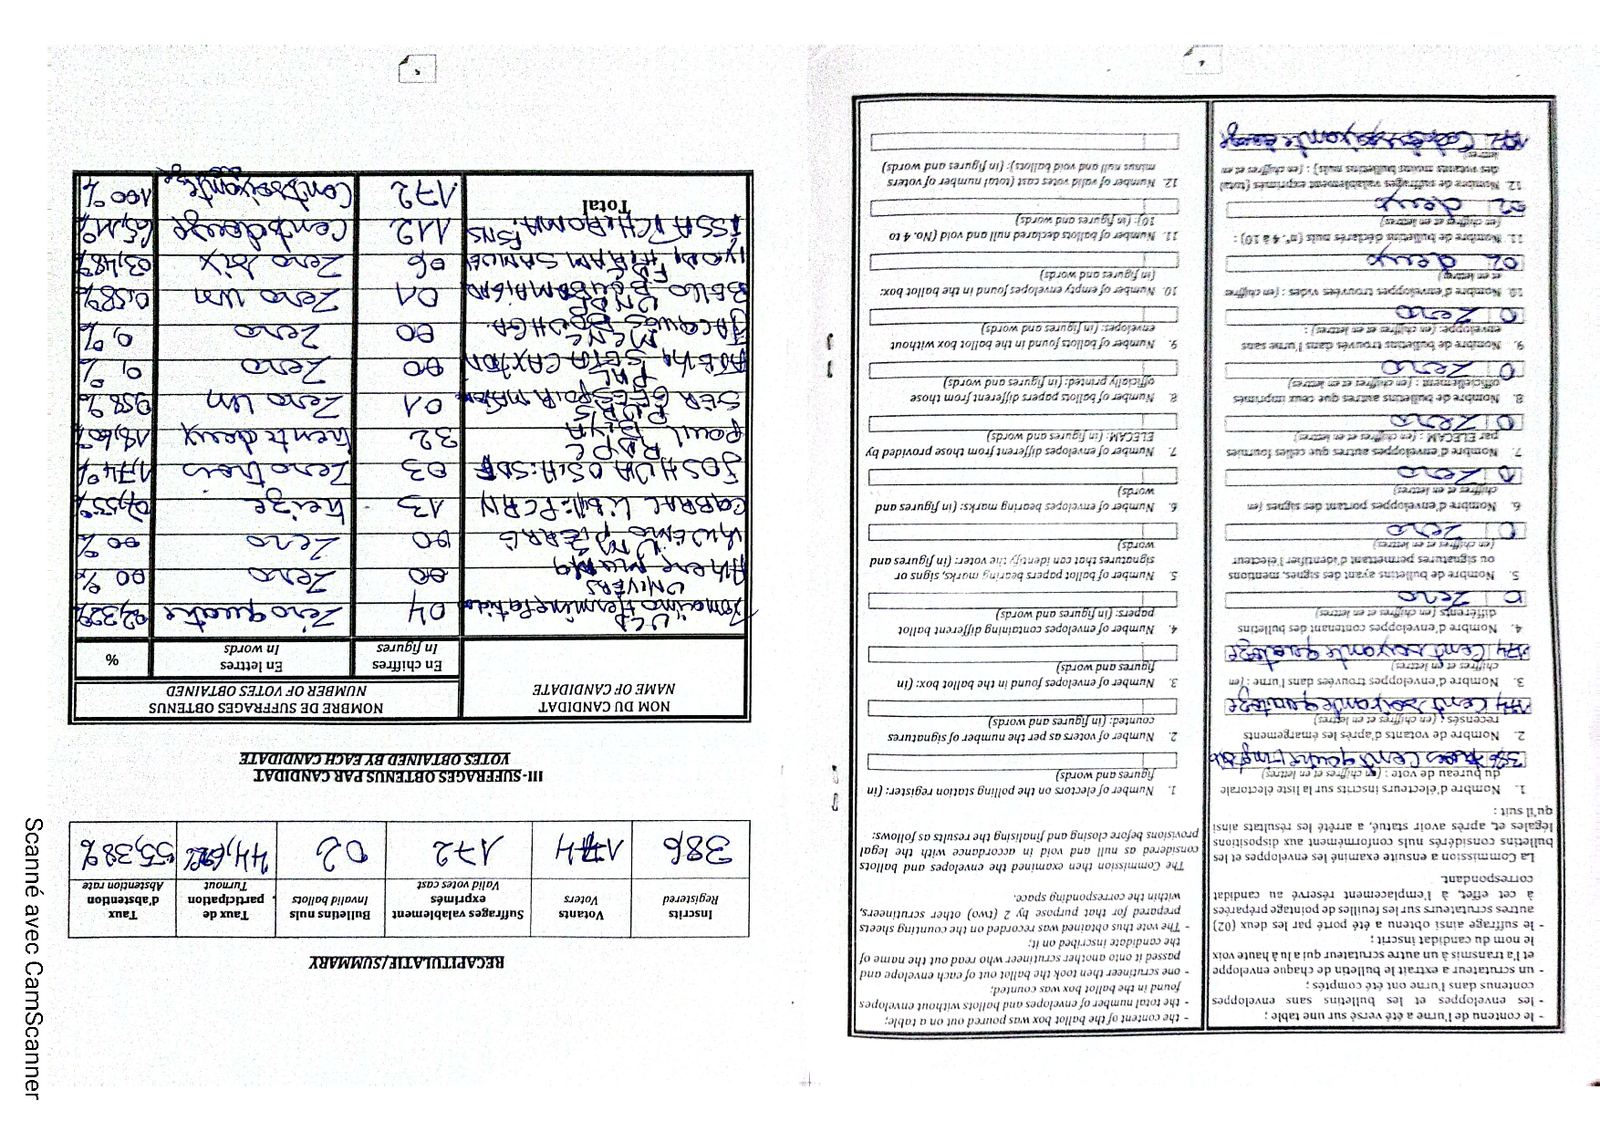 - le contenu de l'urne a été versé sur une table ;
- les enveloppes et les bulletins sans enveloppes
contenus dans l'urne ont été comptés ;
- un scrutateur a extrait le bulletin de chaque enveloppe
et l'a transmis à un autre scrutateur qui a lu à haute voix
le nom du candidat inscrit ;
- le suffrage ainsi obtenu a été porté par les deux (02)
autres scrutateurs sur les feuilles de pointage préparées
à cet effet, à l'emplacement réservé au candidat
correspondant.
La Commission a ensuite examiné les enveloppes et les
bulletins considérés nuls conformément aux dispositions
légales et, après avoir statué, a arrêté les résultats ainsi
qu'il suit :
1. Nombre d'électeurs inscrits sur la liste électorale
du bureau de vote : (en chiffres et en lettres)
386 trois Cent quatre vingt
2. Nombre de votants d'après les émargements
recensés : (en chiffres et en lettres)
174 Cent soixante quatorze
3. Nombre d'enveloppes trouvées dans l'urne : (en
chiffres et en lettres)
174 Cent soixante quatorze
4. Nombre d'enveloppes contenant des bulletins
différents (en chiffres et en lettres)
0 Zero
5. Nombre de bulletins ayant des signes, mentions
ou signatures permettant d'identifier l'électeur
(en chiffres et en lettres)
0 Zero
6. Nombre d'enveloppes portant des signes (en
chiffres et en lettres)
0 Zero
7. Nombre d'enveloppes autres que celles fournies
par ELECAM : (en chiffres et en lettres)
0 Zero
8. Nombre de bulletins autres que ceux imprimés
officiellement : (en chiffres et en lettres)
0 Zero
9. Nombre de bulletins trouvées dans l'urne sans
enveloppe: (en chiffres et en lettres) :
0 Zero
10. Nombre d'enveloppes trouvées vides : (en chiffres
et en lettres)
02 deux
11. Nombre de bulletins déclarés nuls (n°. 4 à 10) :
(en chiffres et en lettres)
02 deux
12. Nombre de suffrages valablement exprimés (total
des votants moins bulletins nuls) : (en chiffres et en
lettres)
172 Cent soixante douze
- the content of the ballot box was poured out on a table;
- the total number of envelopes and ballots without envelopes
found in the ballot box was counted;
- one scrutineer then took the ballot out of each envelope and
passed it onto another scrutineer who read out the name of
the candidate inscribed on it;
- The vote thus obtained was recorded on the counting sheets
prepared for that purpose by 2 (two) other scrutineers,
within the corresponding space.
The Commission then examined the envelopes and ballots
considered as null and void in accordance with the legal
provisions before closing and finalising the results as follows:
1. Number of electors on the polling station register: (in
figures and words)
2. Number of voters as per the number of signatures
counted: (in figures and words)
3. Number of envelopes found in the ballot box: (in
figures and words)
4. Number of envelopes containing different ballot
papers: (in figures and words)
5. Number of ballot papers bearing marks, signs or
signatures that identify the voter: (in figures and
words)
6. Number of envelopes bearing marks: (in figures and
words)
7. Number of envelopes different from those provided by
ELECAM: (in figures and words)
8. Number of ballots papers different from those
officially printed: (in figures and words)
9. Number of ballots found in the ballot box without
envelopes: (in figures and words)
10. Number of empty envelopes found in the ballot box:
(in figures and words)
11. Number of ballots declared null and void (No. 4 to
10): (in figures and words)
12. Number of valid votes cast (total number of voters
minus null and void ballots): (in figures and words)
4
RECAPITULATIF/SUMMARY
Inscrits Registered
Votants Voters
Suffrages valablement exprimés Valid votes cast
Bulletins nuls Invalid ballots
Taux de participation Turnout
Taux d'abstention Abstention rate
386 174 172 02 44,62% 55,38%
III- SUFFRAGES OBTENUS PAR CANDIDAT
VOTES OBTAINED BY EACH CANDIDATE
NOM DU CANDIDAT
NAME OF CANDIDATE
NOMBRE DE SUFFRAGES OBTENUS
NUMBER OF VOTES OBTAINED
En chiffres In figures
En lettres In words
%
Tomaïno Hermine Patricia UCD 04 Zéro quatre 02,32%
UNIVERS 00 Zero 00 %
PIERRE UMS 00 Zero 00 %
CABRAL LIBII: PCRN 13 treize 07,55%
JOSHUA OSIH: SDF 03 Zero trois 1,74%
PAUL BIYA RDPC 32 trente deux 18,60%
SERGE ESPOIR MATOMBA PURS 01 Zero Un 0,58%
ATEKI SETA CAXTON PAL 00 Zero 0, %
JACQUES BOUHGA 00 Zero 0, %
BELLO BOUBA MAIGARI UNDP 01 Zero un 0,58%
IYODI HIRAM SAMUEL FDC 06 Zero Six 03,48%
ISSA TCHIROMA FSNC 112 Cent douze 65,11%
Total 172 Cent soixante douze 100%
5
Scanné avec CamScanner